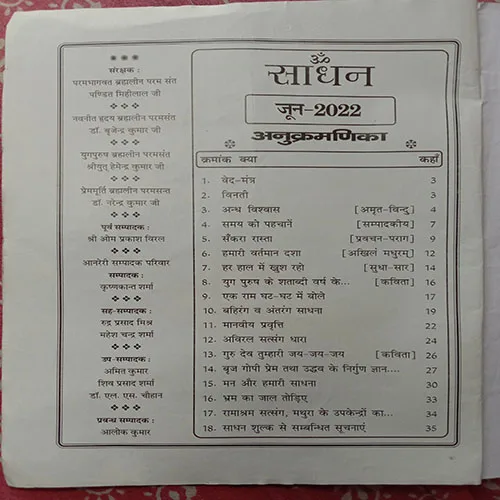 संरक्षक :
परमभागवत ब्रह्मलीन परम संत
पण्डित मिहीलाल जी
नवनीत हृदय ब्रह्मलीन परमसंत
डॉ. बृजेन्द्र कुमार जी
युगपुरुष ब्रह्मलीन परमसंत
श्रीयुत् हेमेन्द्र कुमार जी
प्रेममूर्ति ब्रह्मलीन परमसन्त
डॉ. नरेन्द्र कुमार जी
पूर्व सम्पादक :
श्री ओम प्रकाश विरल
आनरेरी सम्पादक परिवार
सम्पादक :
कृष्णकान्त शर्मा
सह-सम्पादक :
रुद्र प्रसाद मिश्र
महेश चन्द्र शर्मा
उप-सम्पादक :
अमित कुमार
शिव प्रसाद शर्मा
डॉ. एल. एस. चौहान
प्रबन्ध सम्पादक :
आलोक कुमार
ॐ
साधन
जून-2022
अनुक्रमणिका
क्रमांक क्या कहाँ
1. वेद-मंत्र 3
2. विनती 3
3. अन्ध विश्वास [अमृत-विन्दु] 4
4. समय को पहचानें [सम्पादकीय] 7
5. सँकरा रास्ता [प्रवचन-पराग] 9
6. हमारी वर्तमान दशा [अखिलं मधुरम्] 12
7. हर हाल में खुश रहो [सुधा-सार] 14
8. युग पुरुष के शताब्दी वर्ष के... [कविता] 16
9. एक राम घट-घट में बोले 17
10. बहिरंग व अंतरंग साधना 19
11. मानवीय प्रवृत्ति 22
12. अविरल सत्संग धारा 24
13. गुरु देव तुम्हारी जय-जय-जय [कविता] 26
14. बृज गोपी प्रेम तथा उद्धव के निर्गुण ज्ञान.... 27
15. मन और हमारी साधना 30
16. भ्रम का जाल तोड़िए 33
17. रामाश्रम सत्संग, मथुरा के उपकेन्द्रों का... 34
18. साधन शुल्क से सम्बन्धित सूचनाएं 35